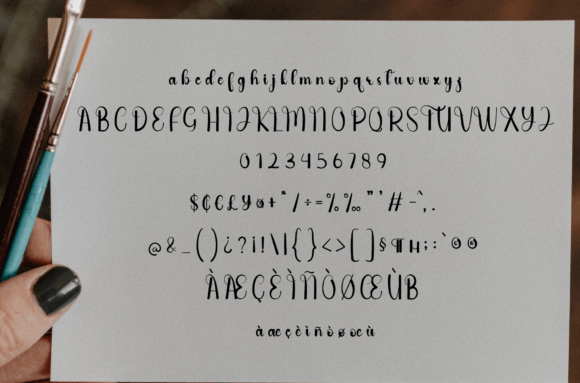 a b c d e f g h i j k l m n o p q r s t u v w x y z
A B C D E F G H I J K L M N O P Q R S T U V W X Y Z
0 1 2 3 4 5 6 7 8 9
$ ₵ € £ ¥ ¤ + * / ÷ = % ‰ " ' # - ^ , .
@ & _ ( ) ¿ ? ¡ ! \ | { } < > [ ] § ¶ ; : `
À Æ Ç È Ì Ñ Ò Ø Œ Ù ß
à æ ç è ì ñ ò ø œ ù